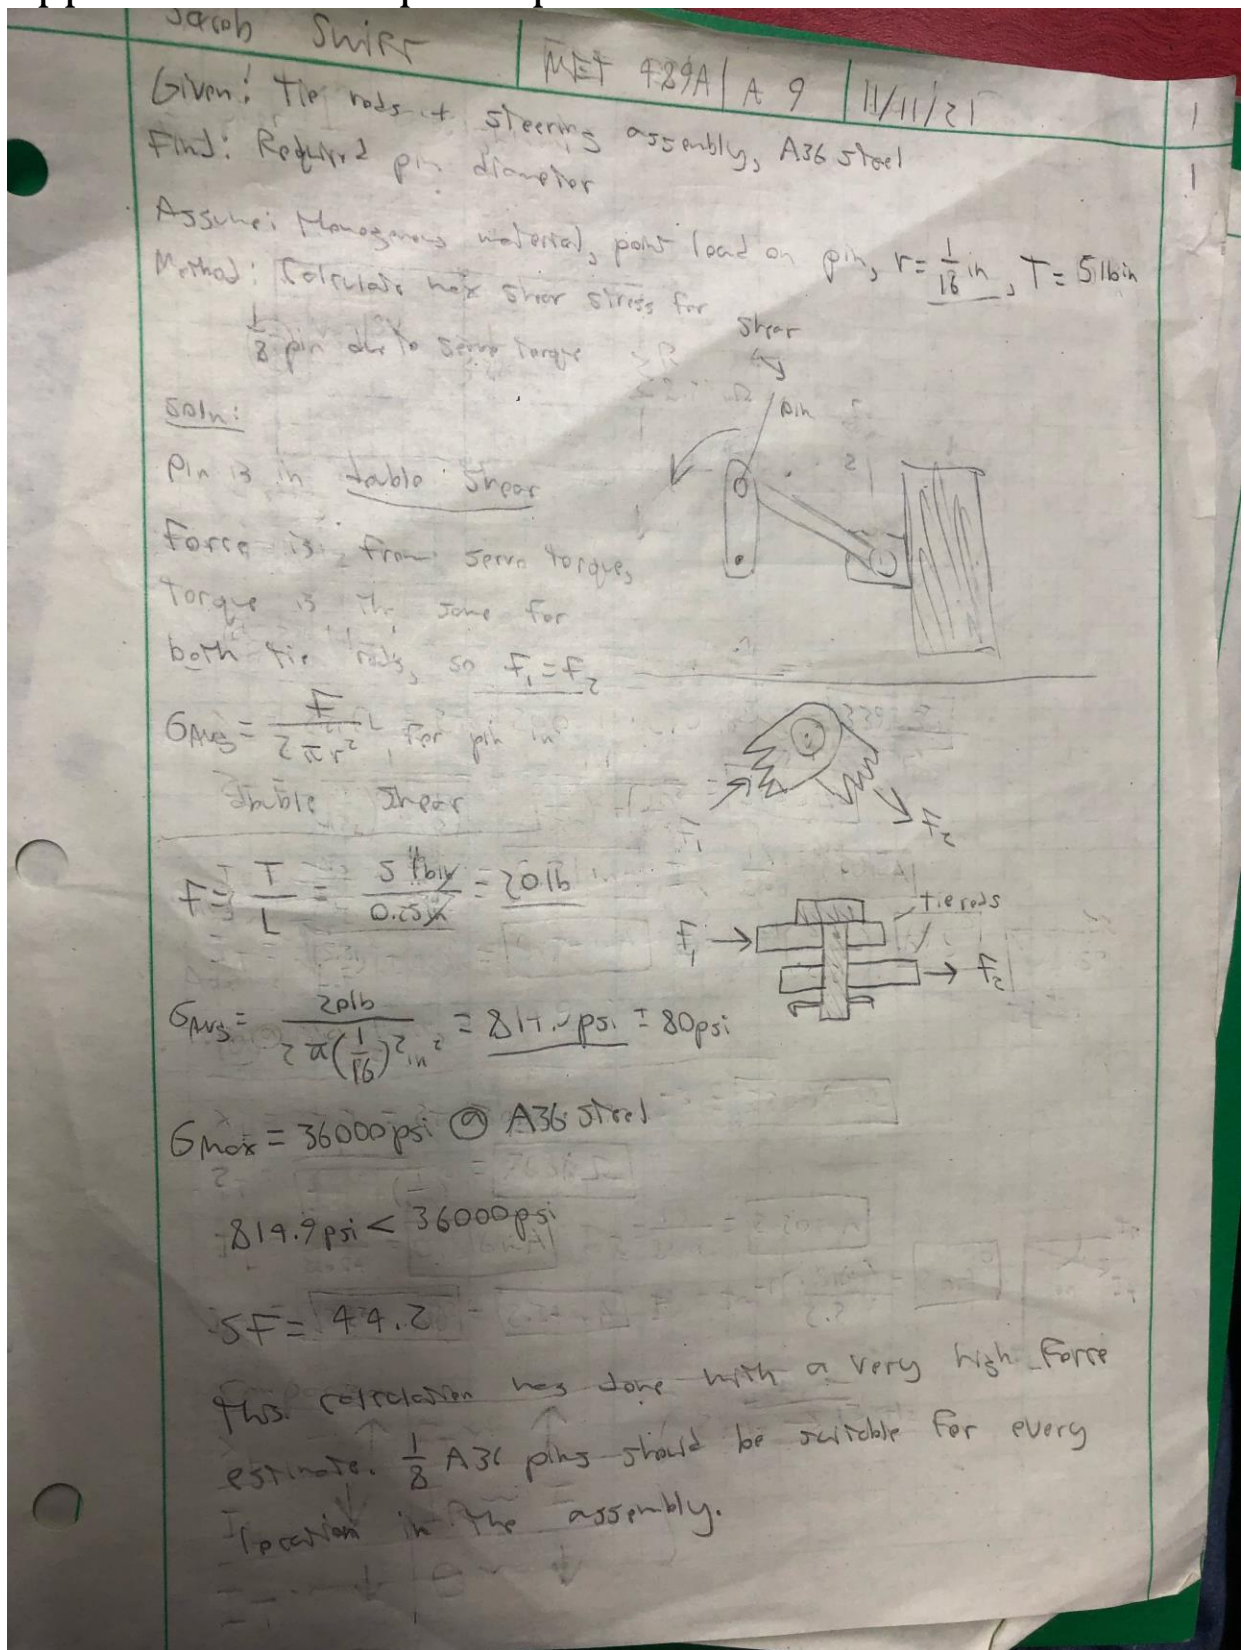 Jacob Swift | MET 489A | A 9 | 11/11/21 | 1
1
Given: Tie rods + steering assembly, A36 steel
Find: Required pin diameter
Assume: Homogenous material, point load on pin, r = 1/16 in, T = 5 lbin
Method: Calculate max shear stress for
1/8 pin due to servo torque
shear
pin
Soln:
Pin is in double shear
Force is from servo torque,
torque is the same for
both tie rods, so F₁ = F₂
σAvg = F / 2πr², for pin in
double shear
F₁
F₂
F = T/L = 5 lbin / 0.25in = 20lb
tie rods
F₁
F₂
σAvg = 20lb / 2π(1/16)² in² = 814.9psi = 80psi
σmax = 36000psi @ A36 steel
814.9psi < 36000psi
SF = 44.2
This calculation was done with a very high force
estimate. 1/8 A36 pins should be suitable for every
location in the assembly.